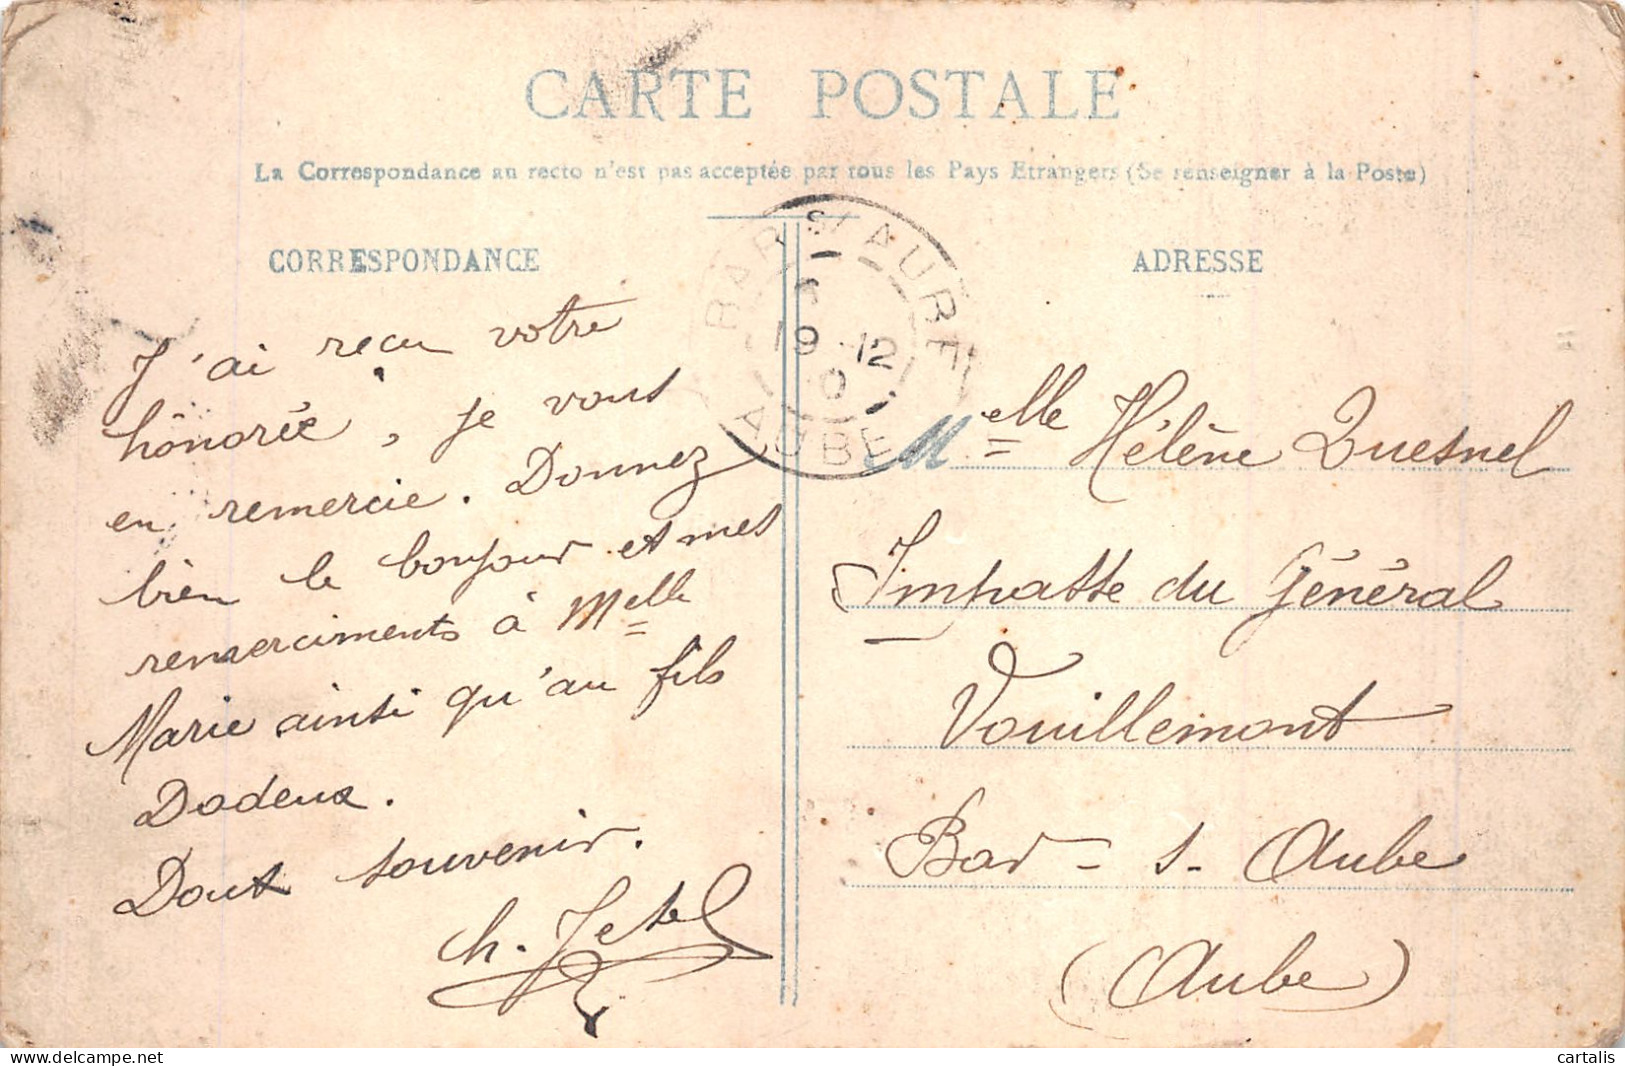 CARTE POSTALE
La Correspondance au recto n'est pas acceptée par tous les Pays Etrangers (Se renseigner à la Poste)
CORRESPONDANCE
J'ai reçu votre
hônorée, je vous
en remercie. Donnez
bien le bonjour et mes
remerciments à Melle
Marie ainsi qu'au fils
Dadeux.
Doux souvenir.
Ch.
BAR S/ AUBE
19 - 12
AUBE
ADRESSE
Melle Hélène Quesnel
Impasse du Général
Vouillemont
Bar - s - Aube
(Aube)
cartalis